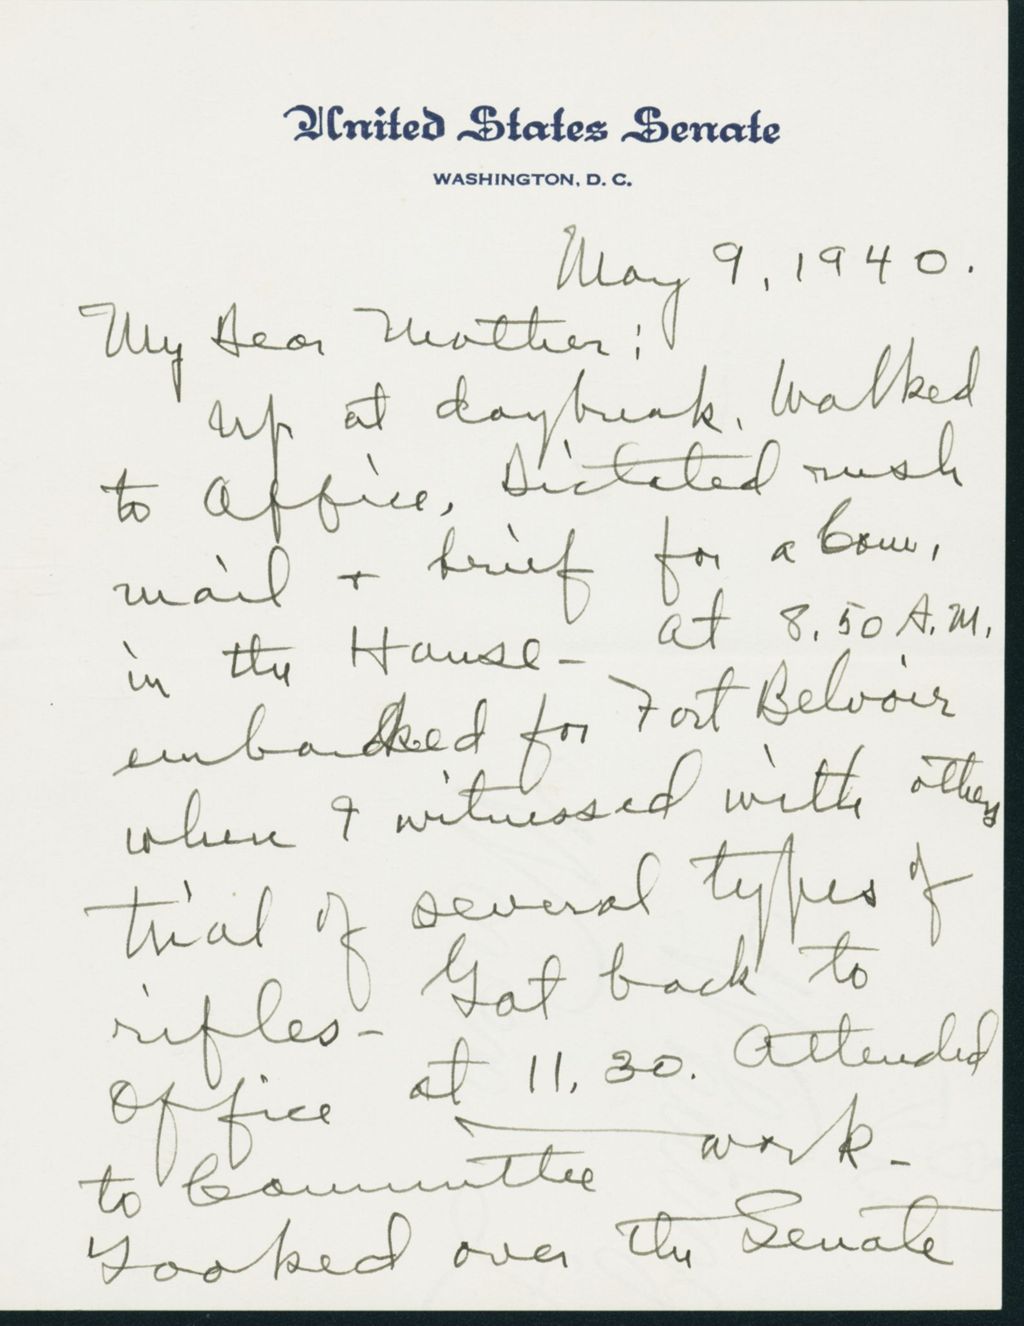 United States Senate
WASHINGTON, D. C.
May 9, 1940.
My Dear Mother:
Up at daybreak. Walked
to Office, Dictated rush
mail + brief for a Com,
in the House - at 8.50 A.M.
embarked for Fort Belvoir
when I witnessed with others
trial of several types of
rifles - Got back to
Office at 11.30. Attended
to Committee work -
Looked over the Senate